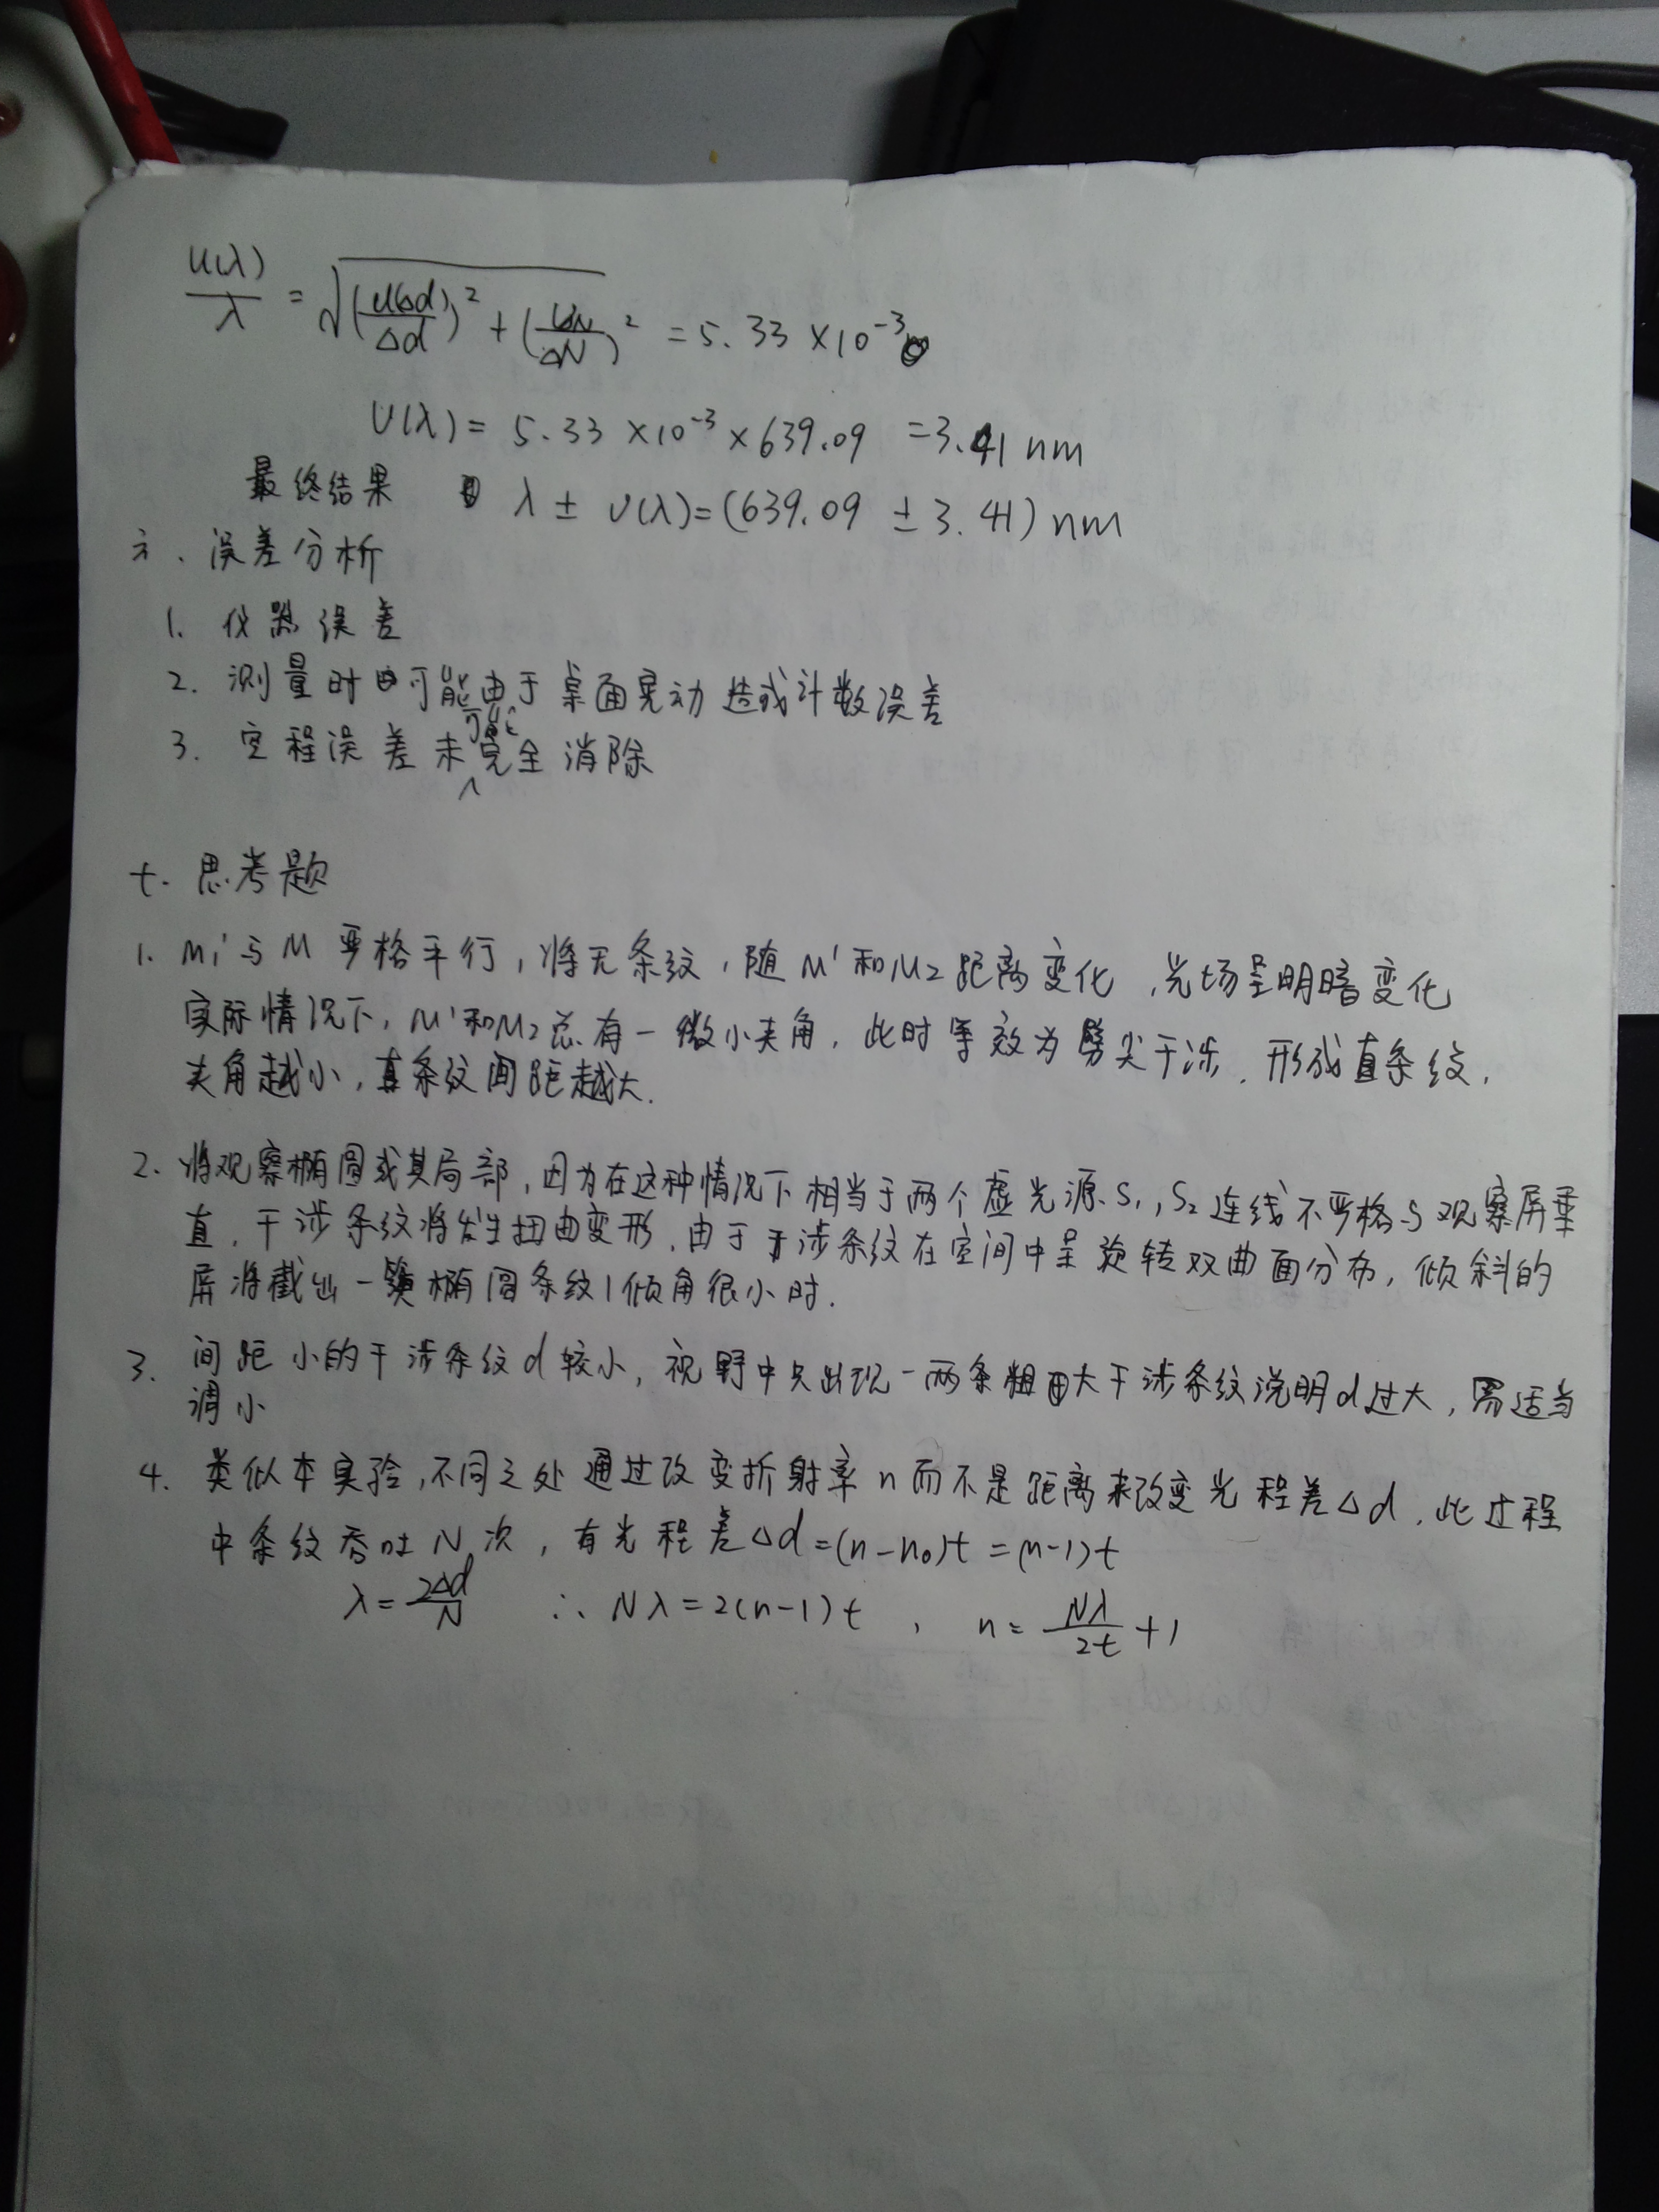 U(λ)/λ = √((U(Δd)/Δd)² + (UN/ΔN)²) = 5.33 ×10⁻³
U(λ) = 5.33 ×10⁻³ × 639.09 = 3.41 nm
最终结果 λ ± U(λ) = (639.09 ± 3.41) nm
六、误差分析
1. 仪器误差
2. 测量时可能由于桌面晃动造成计数误差
3. 空程误差未可能完全消除
七. 思考题
1. M₁'与M 严格平行，将无条纹，随M'和M₂距离变化，光场呈明暗变化
实际情况下，M'和M₂总有一微小夹角，此时等效为劈尖干涉，形成直条纹，
夹角越小，直条纹间距越大.
2. 将观察椭圆或其局部，因为在这种情况下相当于两个虚光源S₁,S₂连线不严格与观察屏垂
直，干涉条纹将发生扭曲变形，由于干涉条纹在空间中呈旋转双曲面分布，倾斜的
屏将截出一簇椭圆条纹(倾角很小时.
3. 间距小的干涉条纹d较小，视野中只出现一两条粗大干涉条纹说明d过大，需适当
调小
4. 类似本实验，不同之处通过改变折射率n而不是距离来改变光程差Δd，此过程
中条纹吞吐N次，有光程差Δd=(n-n₀)t=(n-1)t
λ=2Δd/N ∴ Nλ=2(n-1)t ， n= Nλ/2t +1